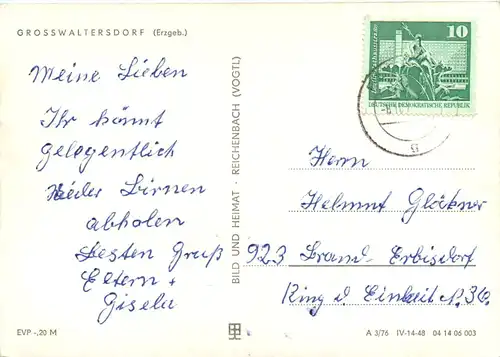 GROSSWALTERSDORF (Erzgeb.)
Meine Lieben
Ihr könnt
gelegentlich
wieder Birnen
abholen
Besten Gruß
Eltern +
Gisela
EVP -,20 M
BILD UND HEIMAT · REICHENBACH (VOGTL)
10
DEUTSCHE DEMOKRATISCHE REPUBLIK
Herrn
Helmut Glöckner
923 Brand-Erbisdorf
Ring d. Einheit N. 36
A 3/76 IV-14-48 04 14 06 003